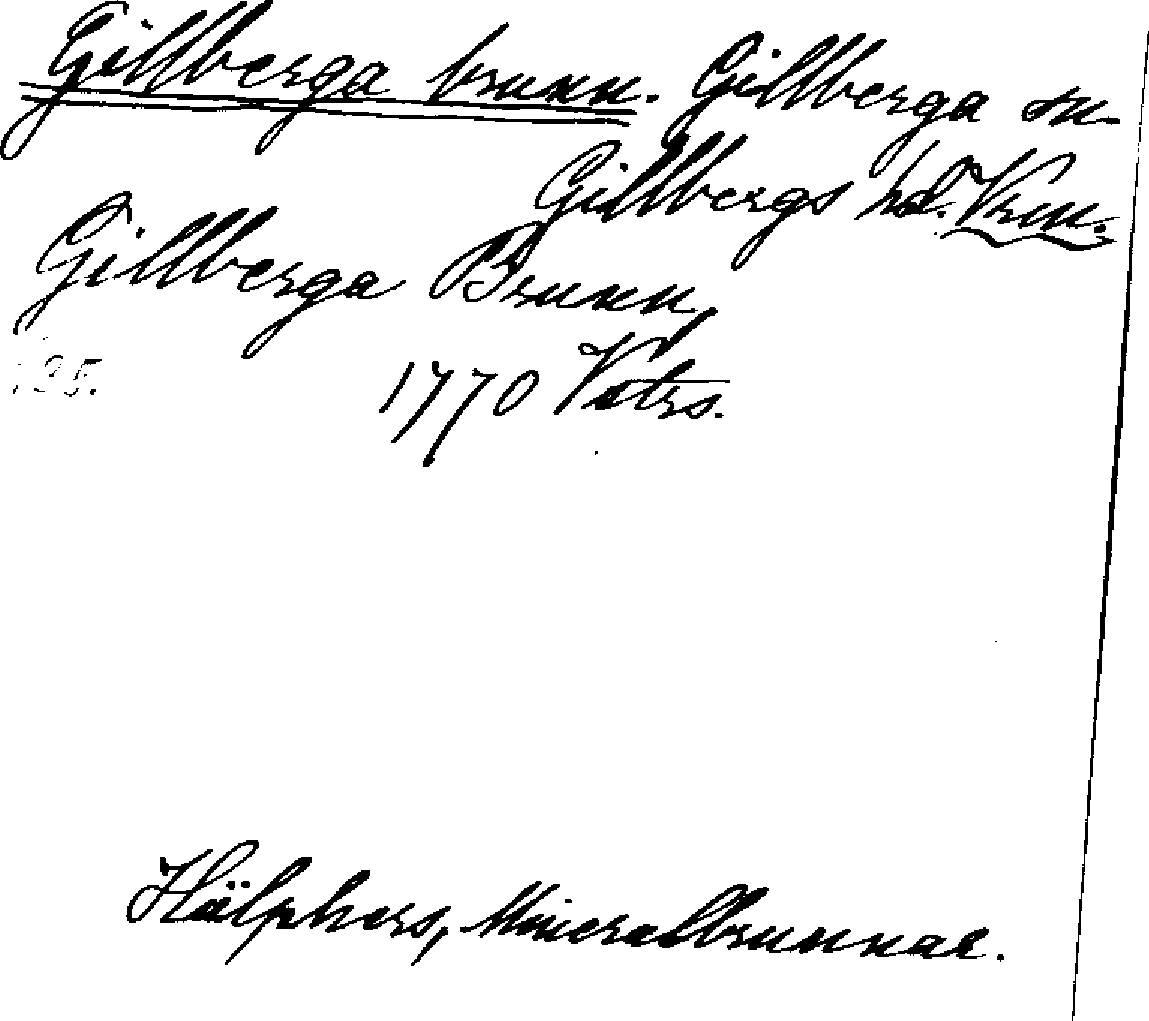 Gillberga brunn. Gillberga sn.
Gillbergs hd. Vrm.
Gillberga Brunn
1770 Vatrs.
Hälphers, Mineralbrunnar.